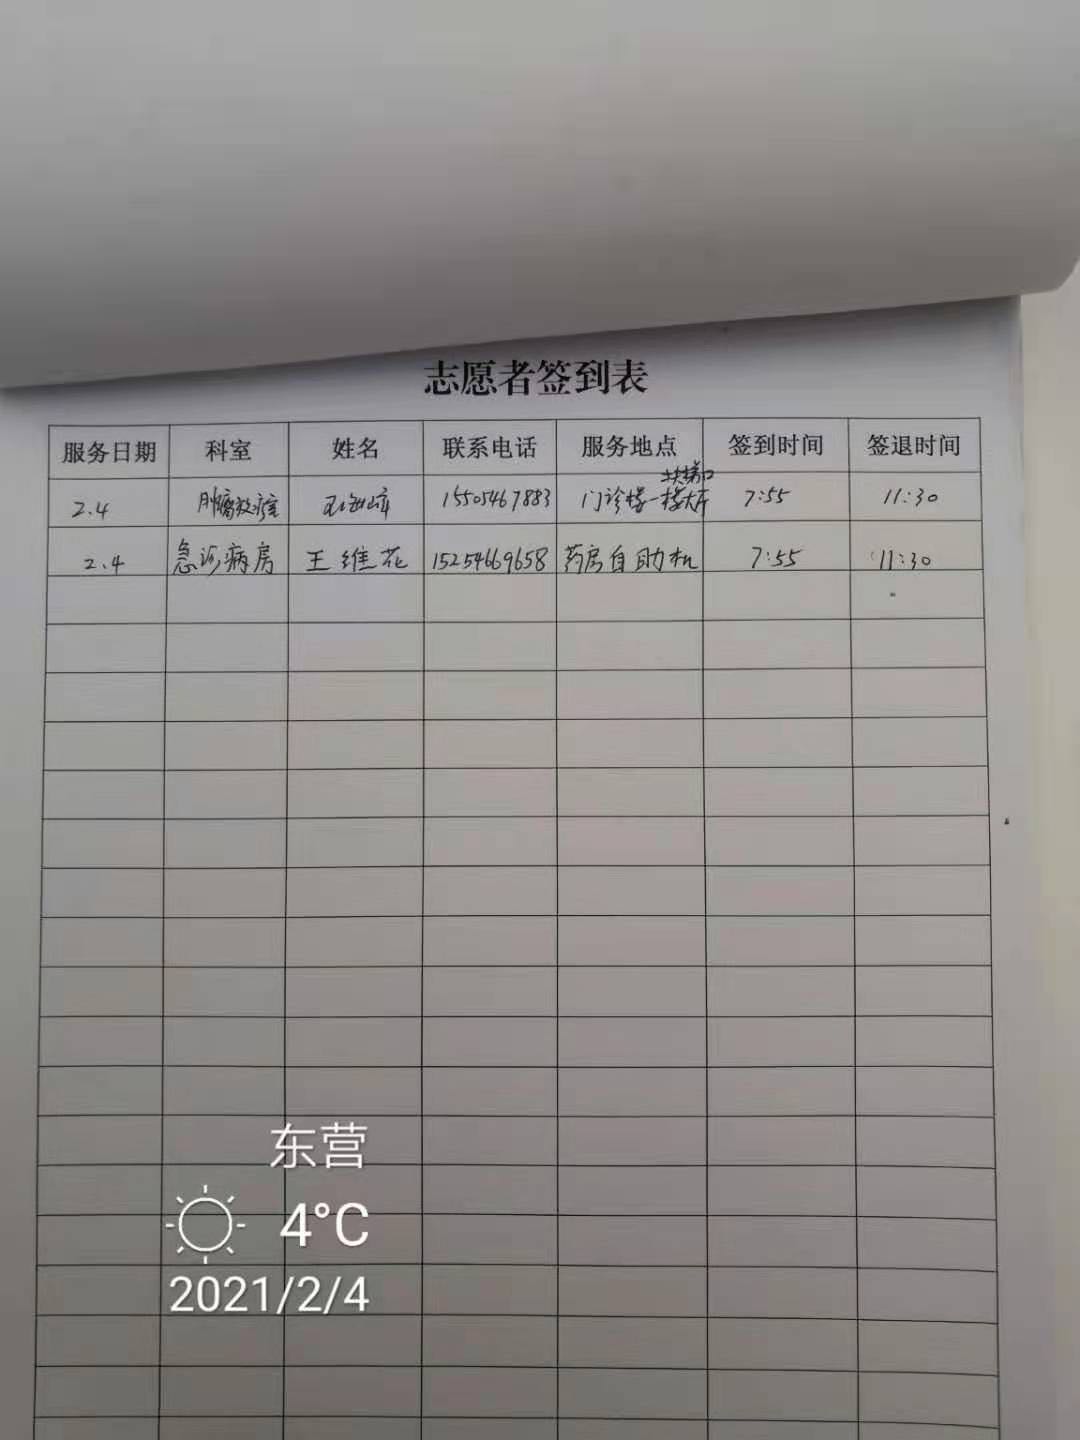 志愿者签到表
服务日期 科室 姓名 联系电话 服务地点 签到时间 签退时间
扶梯口
2.4 肿瘤放疗室 15505467883 门诊楼一楼大厅 7:55 11:30
2.4 急诊病房 王维花 15254669658 药房自助机 7:55 11:30
东营
4°C
2021/2/4